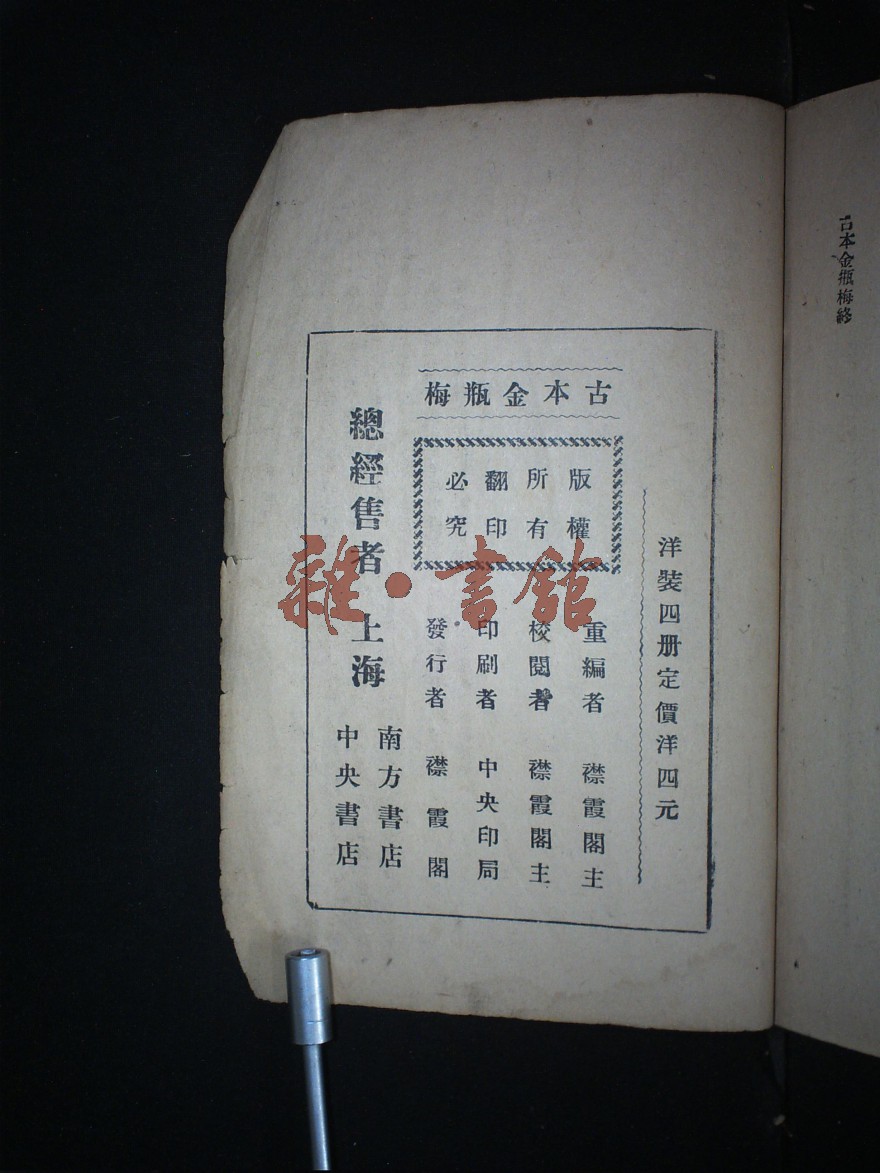 古本金瓶梅終
洋裝四册定價洋四元
古本金瓶梅
版權
所有
翻印
必究
重編者 襟霞閣主
校閱者 襟霞閣主
印刷者 中央印局
發行者 襟霞閣
總經售者 上海
南方書店
中央書店
雜·書館